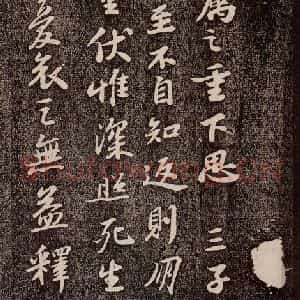 属之重下思 三子
至不自知返則明
伏惟深照死生
憂哀之無益釋